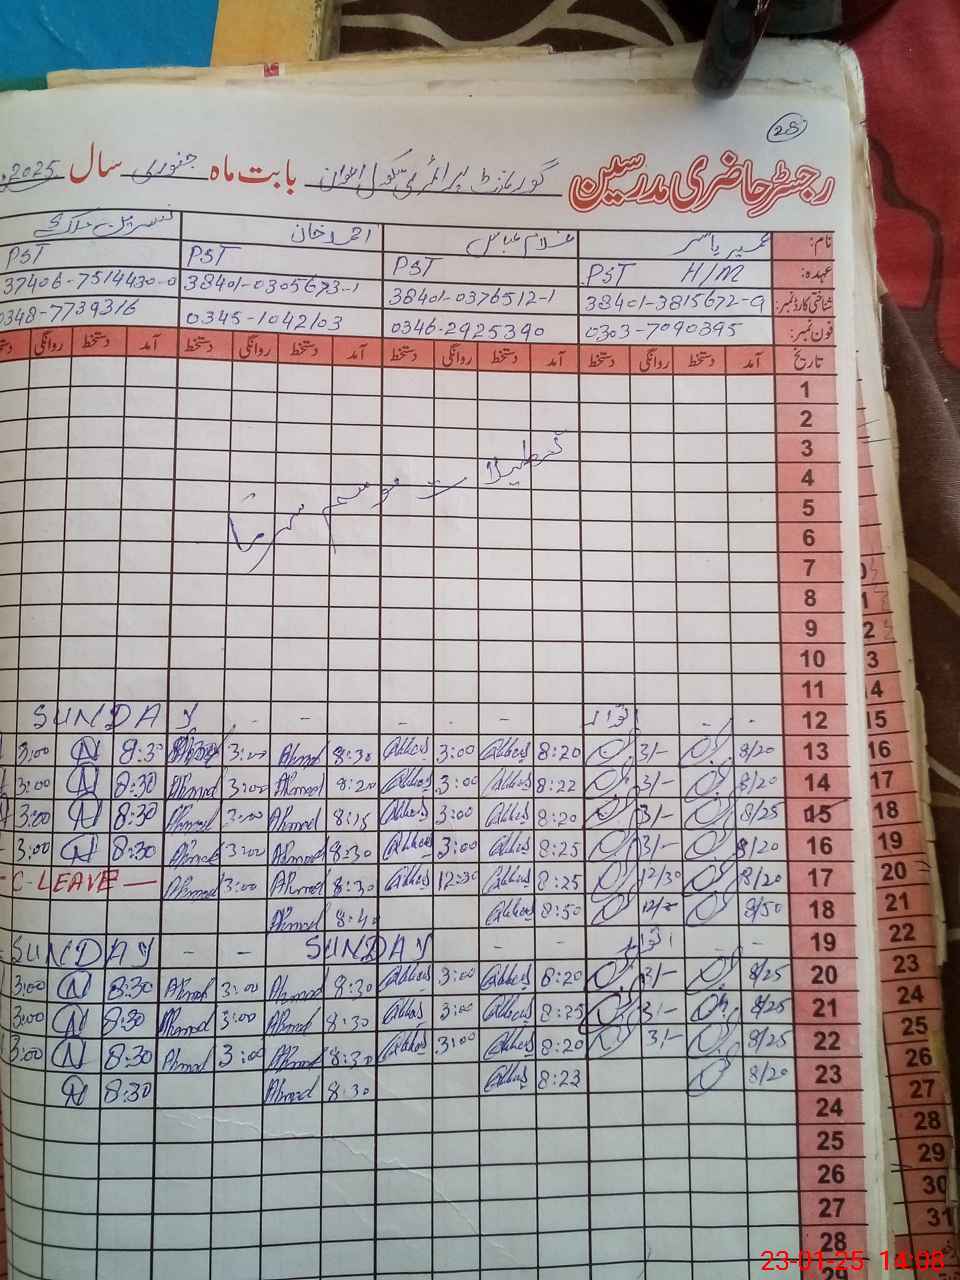 28
رجسٹر حاضری مدرسین گورنمنٹ پرائمری سکول اعوان بابت ماہ جنوری سال 2025
نام: عمیر یاسر غلام عباس احمد خان
عہدہ: PST H/M PST PST PST
شناختی کارڈ نمبر: 38401-3815672-9 38401-0376512-1 38401-0305673-1 37406-7514430-0
فون نمبر: 0303-7090395 0346-2925390 0345-1042103 0348-7739316
تاریخ آمد دستخط روانگی دستخط آمد دستخط روانگی دستخط آمد دستخط روانگی دستخط آمد دستخط روانگی
1
2
3
4
5
6
7
8
9
10
11
تعطیلات موسم سرما
12 اتوار - - - - - - SUNDAY
13 8/20 3/- 8:20 Abbas 3:00 Abbas 8:30 Ahmad 3:00 Ahmad 8:30 N 3:00
14 8/20 3/- 8:22 Abbas 3:00 Abbas 8:20 Ahmad 3:00 Ahmad 8:30 N 3:00
15 8/25 3/- 8:20 Abbas 3:00 Abbas 8:15 Ahmad 3:00 Ahmad 8:30 N 3:00
16 8/20 3/- 8:25 Abbas 3:00 Abbas 8:30 Ahmad 3:00 Ahmad 8:30 N 3:00
17 8/20 12/30 8:25 Abbas 12:30 Abbas 8:30 Ahmad 3:00 Ahmad - C-LEAVE -
18 8/50 8:50 Abbas 8:40 Ahmad
19 - - اتوار - - SUNDAY - - SUNDAY
20 8/25 3/- 8:20 Abbas 3:00 Abbas 8:30 Ahmad 3:00 Ahmad 8:30 N 3:00
21 8/25 3/- 8:25 Abbas 3:00 Abbas 8:30 Ahmad 3:00 Ahmad 8:30 N 3:00
22 8/25 3/- 8:20 Abbas 3:00 Abbas 8:30 Ahmad 3:00 Ahmad 8:30 N 3:00
23 8/20 8:23 Abbas 8:30 Ahmad 8:30 N
24
25
26
27
28
29
15
16
17
18
19
20
21
22
23
24
25
26
27
28
29
30
31
23-01-25 14:08